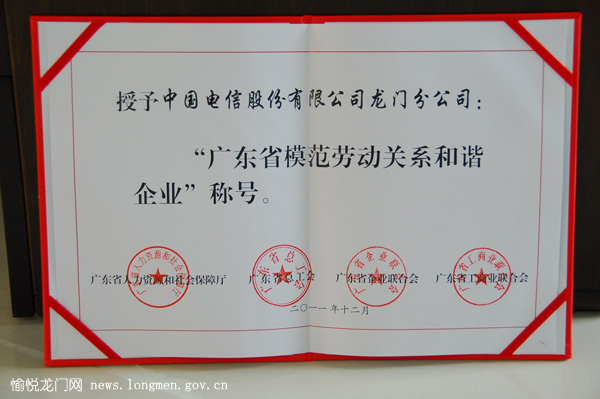 授予中国电信股份有限公司龙门分公司：
“广东省模范劳动关系和谐
企业”称号。
广东省人力资源和社会保障厅 广东省总工会 广东省企业联合会 广东省工商业联合会
二〇一一年十二月
愉悦龙门网 news.longmen.gov.cn